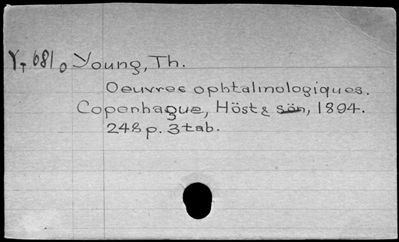 Y⊤ 681 o Young, Th.
Oeuvres ophtalmologiques.
Copenhague, Höst & sön, 1894.
248 p. 3 tab.